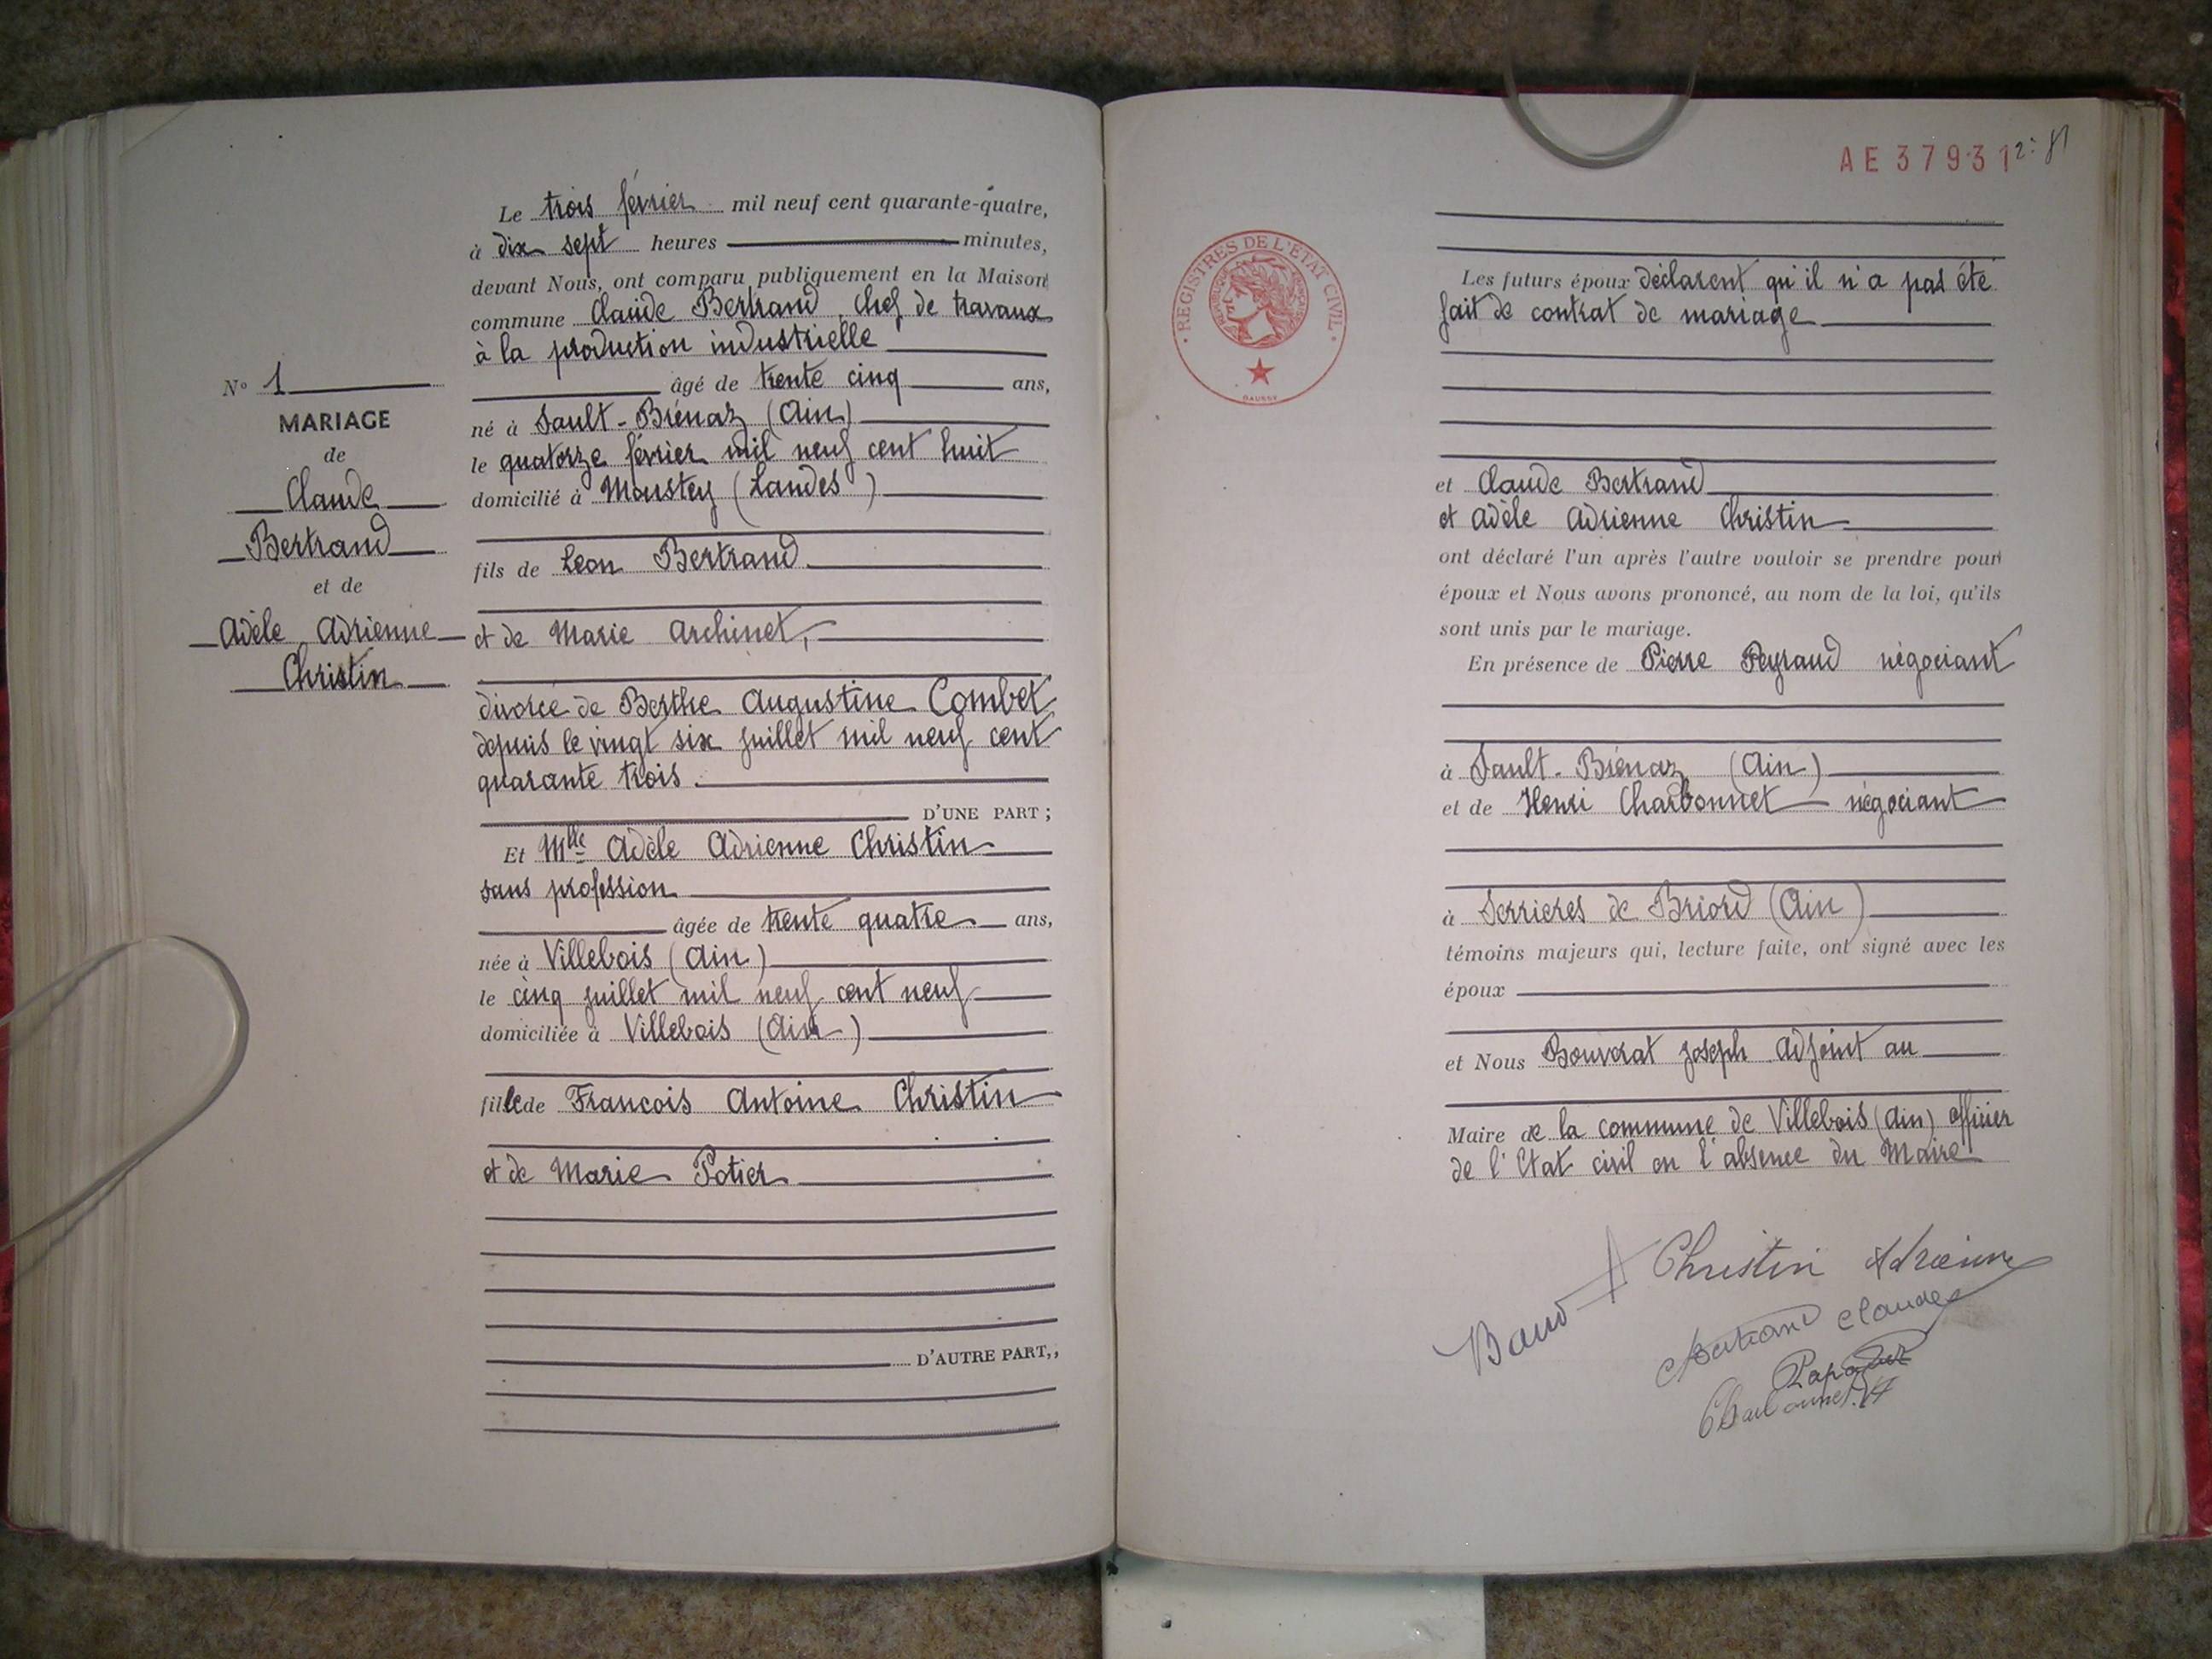 N° 1
MARIAGE
de
Claude
Bertrand
et de
Adèle Adrienne
Christin
Le trois février mil neuf cent quarante-quatre,
à dix sept heures minutes,
devant Nous, ont comparu publiquement en la Maison
commune Claude Bertrand, chef de travaux
à la production industrielle
âgé de trente cinq ans,
né à Sault-Brénaz (Ain)
le quatorze février mil neuf cent huit
domicilié à Moustey (Landes)
fils de Léon Bertrand
et de Marie Archinet,
divorcé de Berthe Augustine Combet
depuis le vingt six juillet mil neuf cent
quarante trois.
D'UNE PART ;
Et Mlle Adèle Adrienne Christin
sans profession
âgée de trente quatre ans,
née à Villebois (Ain)
le cinq juillet mil neuf cent neuf
domiciliée à Villebois (Ain)
fille de François Antoine Christin
et de Marie Potier
D'AUTRE PART,,
AE 37931
REGISTRES DE L'ÉTAT CIVIL
Les futurs époux déclarent qu'il n'a pas été
fait de contrat de mariage
et Claude Bertrand
et Adèle Adrienne Christin
ont déclaré l'un après l'autre vouloir se prendre pour
époux et Nous avons prononcé, au nom de la loi, qu'ils
sont unis par le mariage.
En présence de Pierre Peyraud négociant
à Sault-Brénaz (Ain)
et de Henri Charbonnet négociant
à Serrieres de Briord (Ain)
témoins majeurs qui, lecture faite, ont signé avec les
époux
et Nous Bouverat Joseph Adjoint au
Maire de la commune de Villebois (Ain) officier
de l'Etat civil en l'absence du Maire
Christin Adrienne
Bertrand Claude
Charbonnet